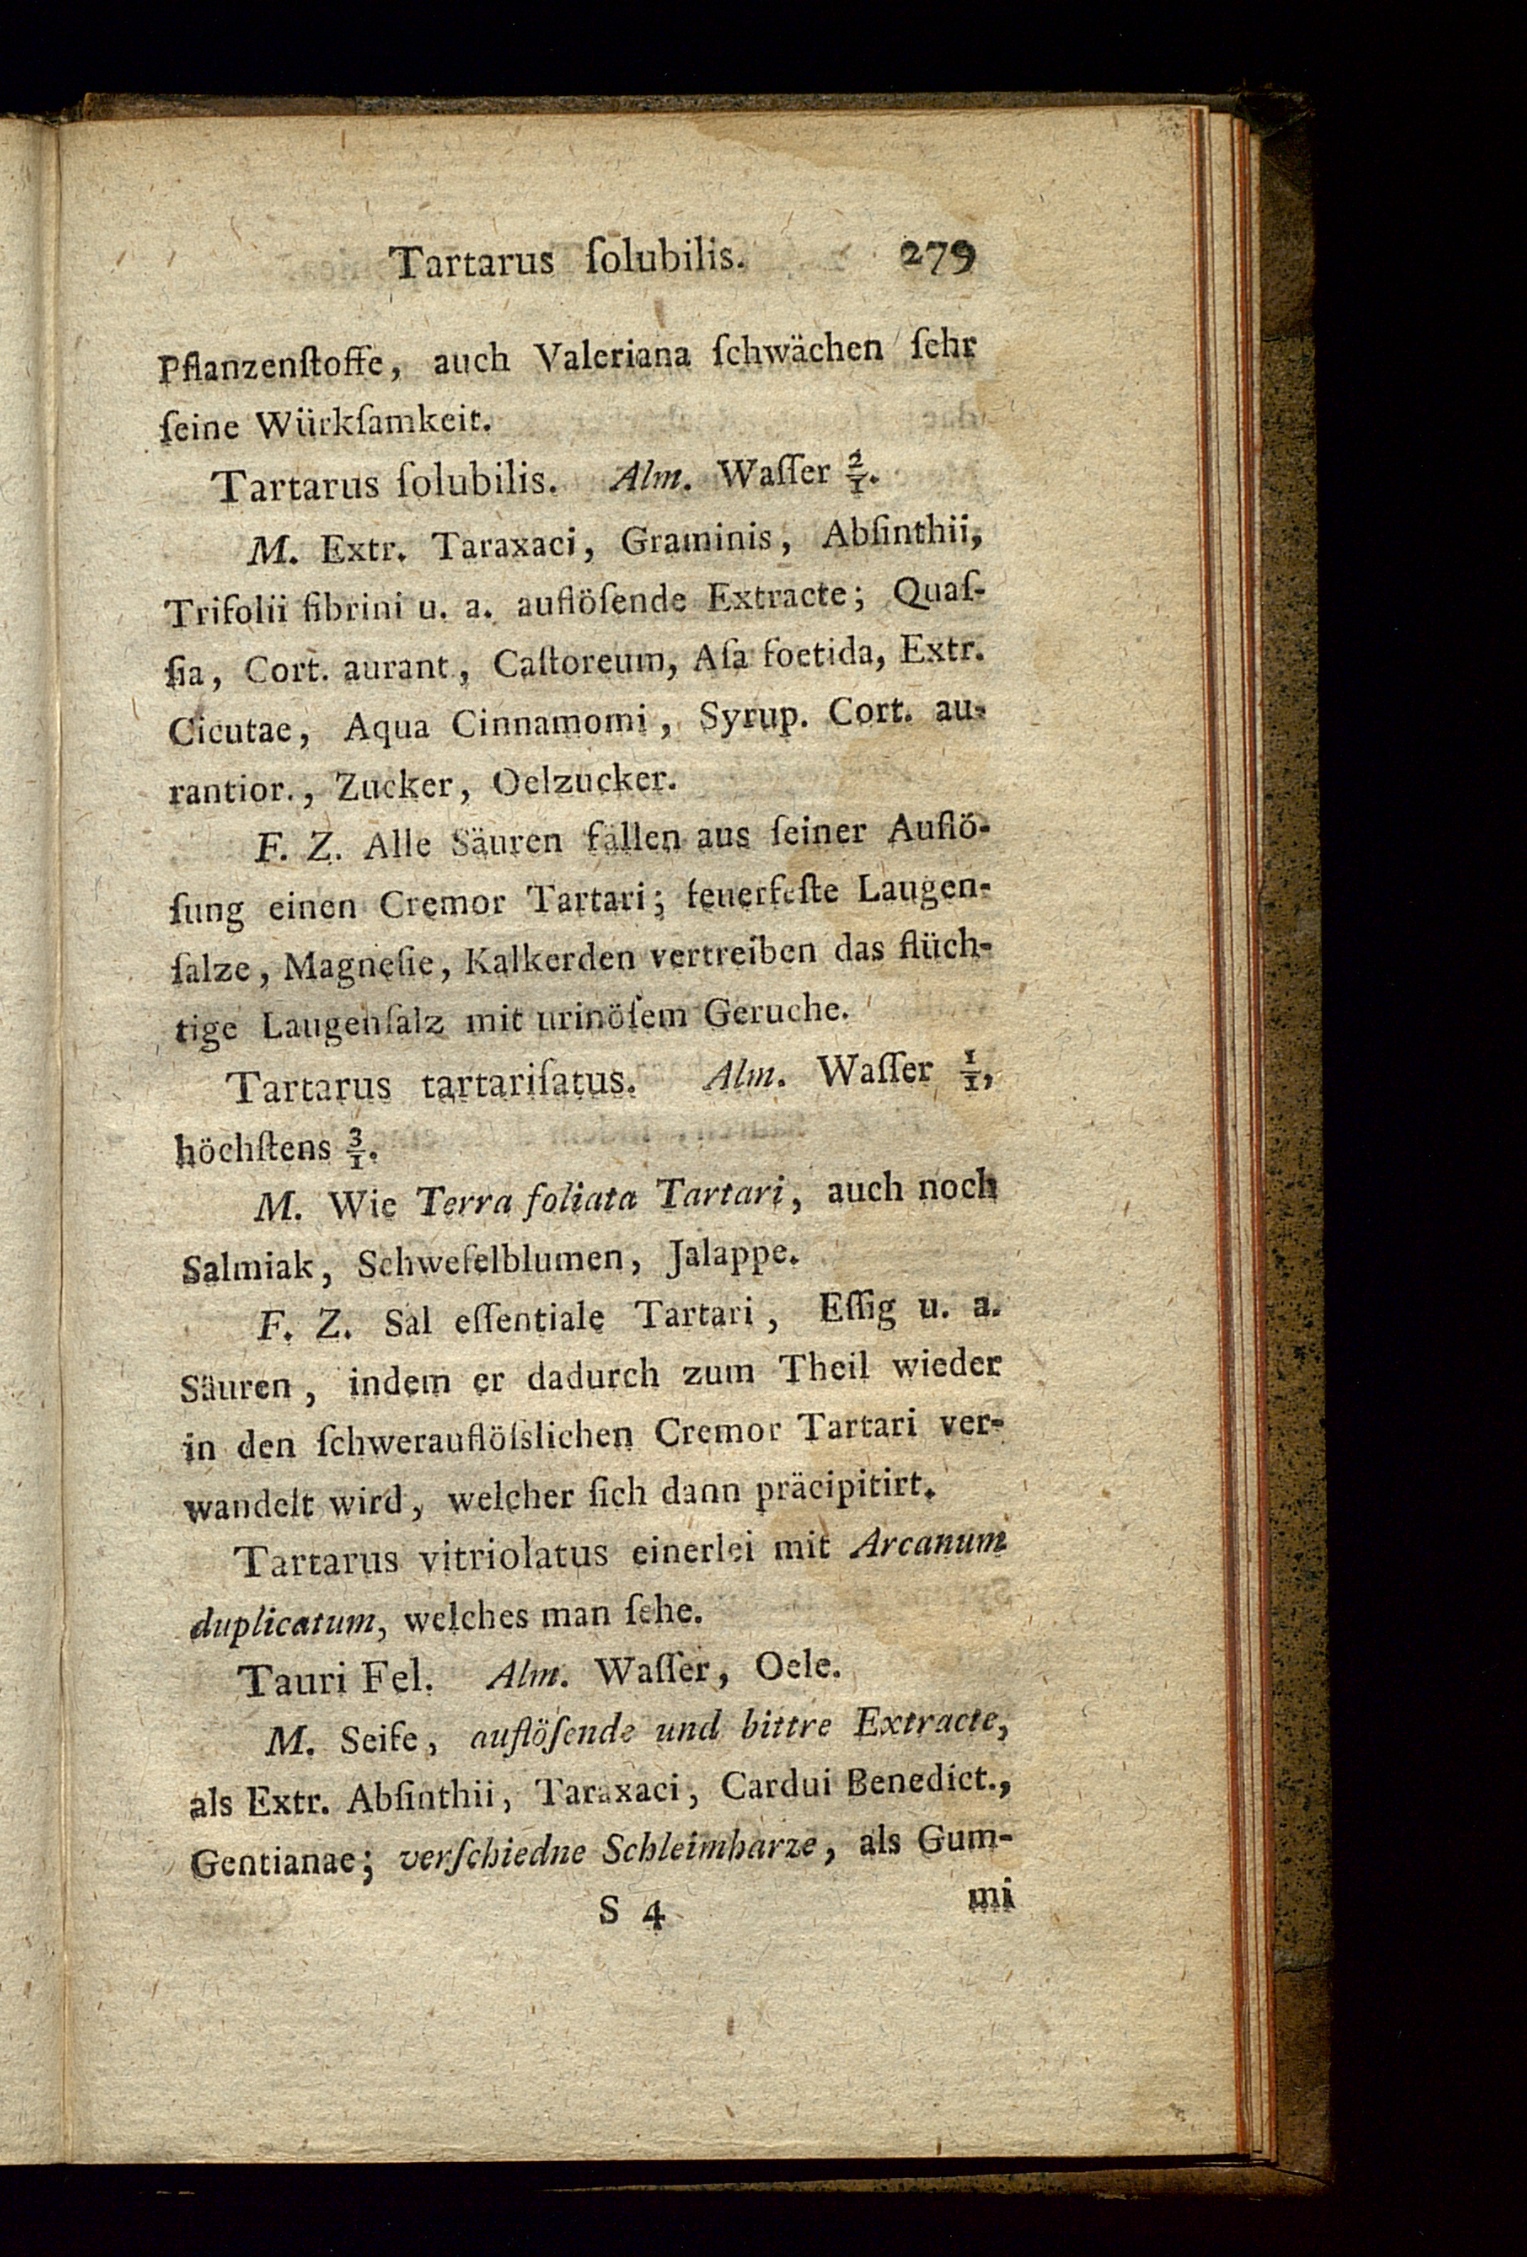 Tartarus ſolubilis. 279
Pflanzenſtoffe, auch Valeriana ſchwächen ſehr
ſeine Würkſamkeit.
Tartarus ſolubilis. Alm. Waſſer 2/1.
M. Extr. Taraxaci, Graminis, Abſinthii,
Trifolii fibrini u. a. auflöſende Extracte; Quaſ-
ſia, Cort. aurant., Caſtoreum, Aſa foetida, Extr.
Cicutae, Aqua Cinnamomi, Syrup. Cort. au-
rantior., Zucker, Oelzucker.
F. Z. Alle Säuren fällen aus ſeiner Auflö-
ſung einen Cremor Tartari; feuerfeſte Laugen-
ſalze, Magneſie, Kalkerden vertreiben das flüch-
tige Laugenſalz mit urinöſem Geruche.
Tartarus tartariſatus. Alm. Waſſer 1/1,
höchſtens 3/1.
M. Wie Terra foliata Tartari, auch noch
Salmiak, Schwefelblumen, Jalappe.
F. Z. Sal eſſentiale Tartari, Eſſig u. a.
Säuren, indem er dadurch zum Theil wieder
in den ſchwerauflöſslichen Cremor Tartari ver-
wandelt wird, welcher ſich dann präcipitirt.
Tartarus vitriolatus einerlei mit Arcanum
duplicatum, welches man ſehe.
Tauri Fel. Alm. Waſſer, Oele.
M. Seife, auflöſende und bittre Extracte,
als Extr. Abſinthii, Taraxaci, Cardui Benedict.,
Gentianae; verſchiedne Schleimharze, als Gum-
S 4 mi